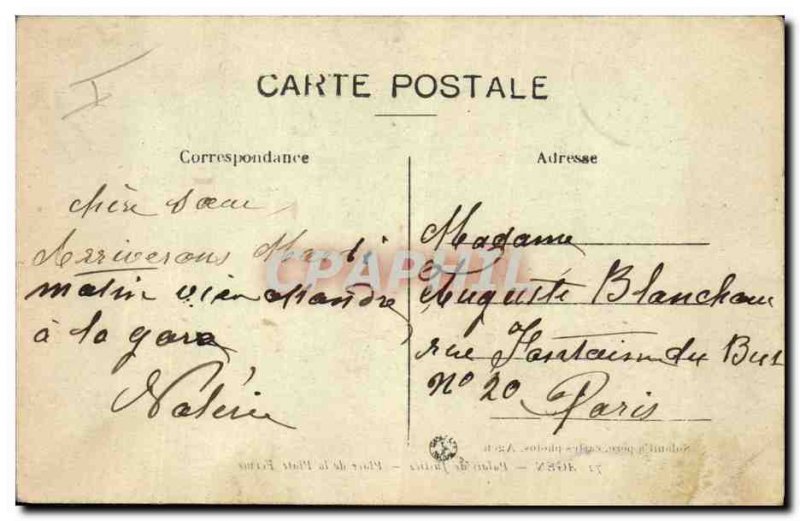 CARTE POSTALE
Correspondance
Adresse
chère Sœur
Arriverons Mardi
matin vien attandre
à la gare
Valérie
Madame
Auguste Blanchou
rue Fontaine du But
No 20
Paris
CPAPHIL
72 AGEN - Palais de Justice - Place de la Plate Forme